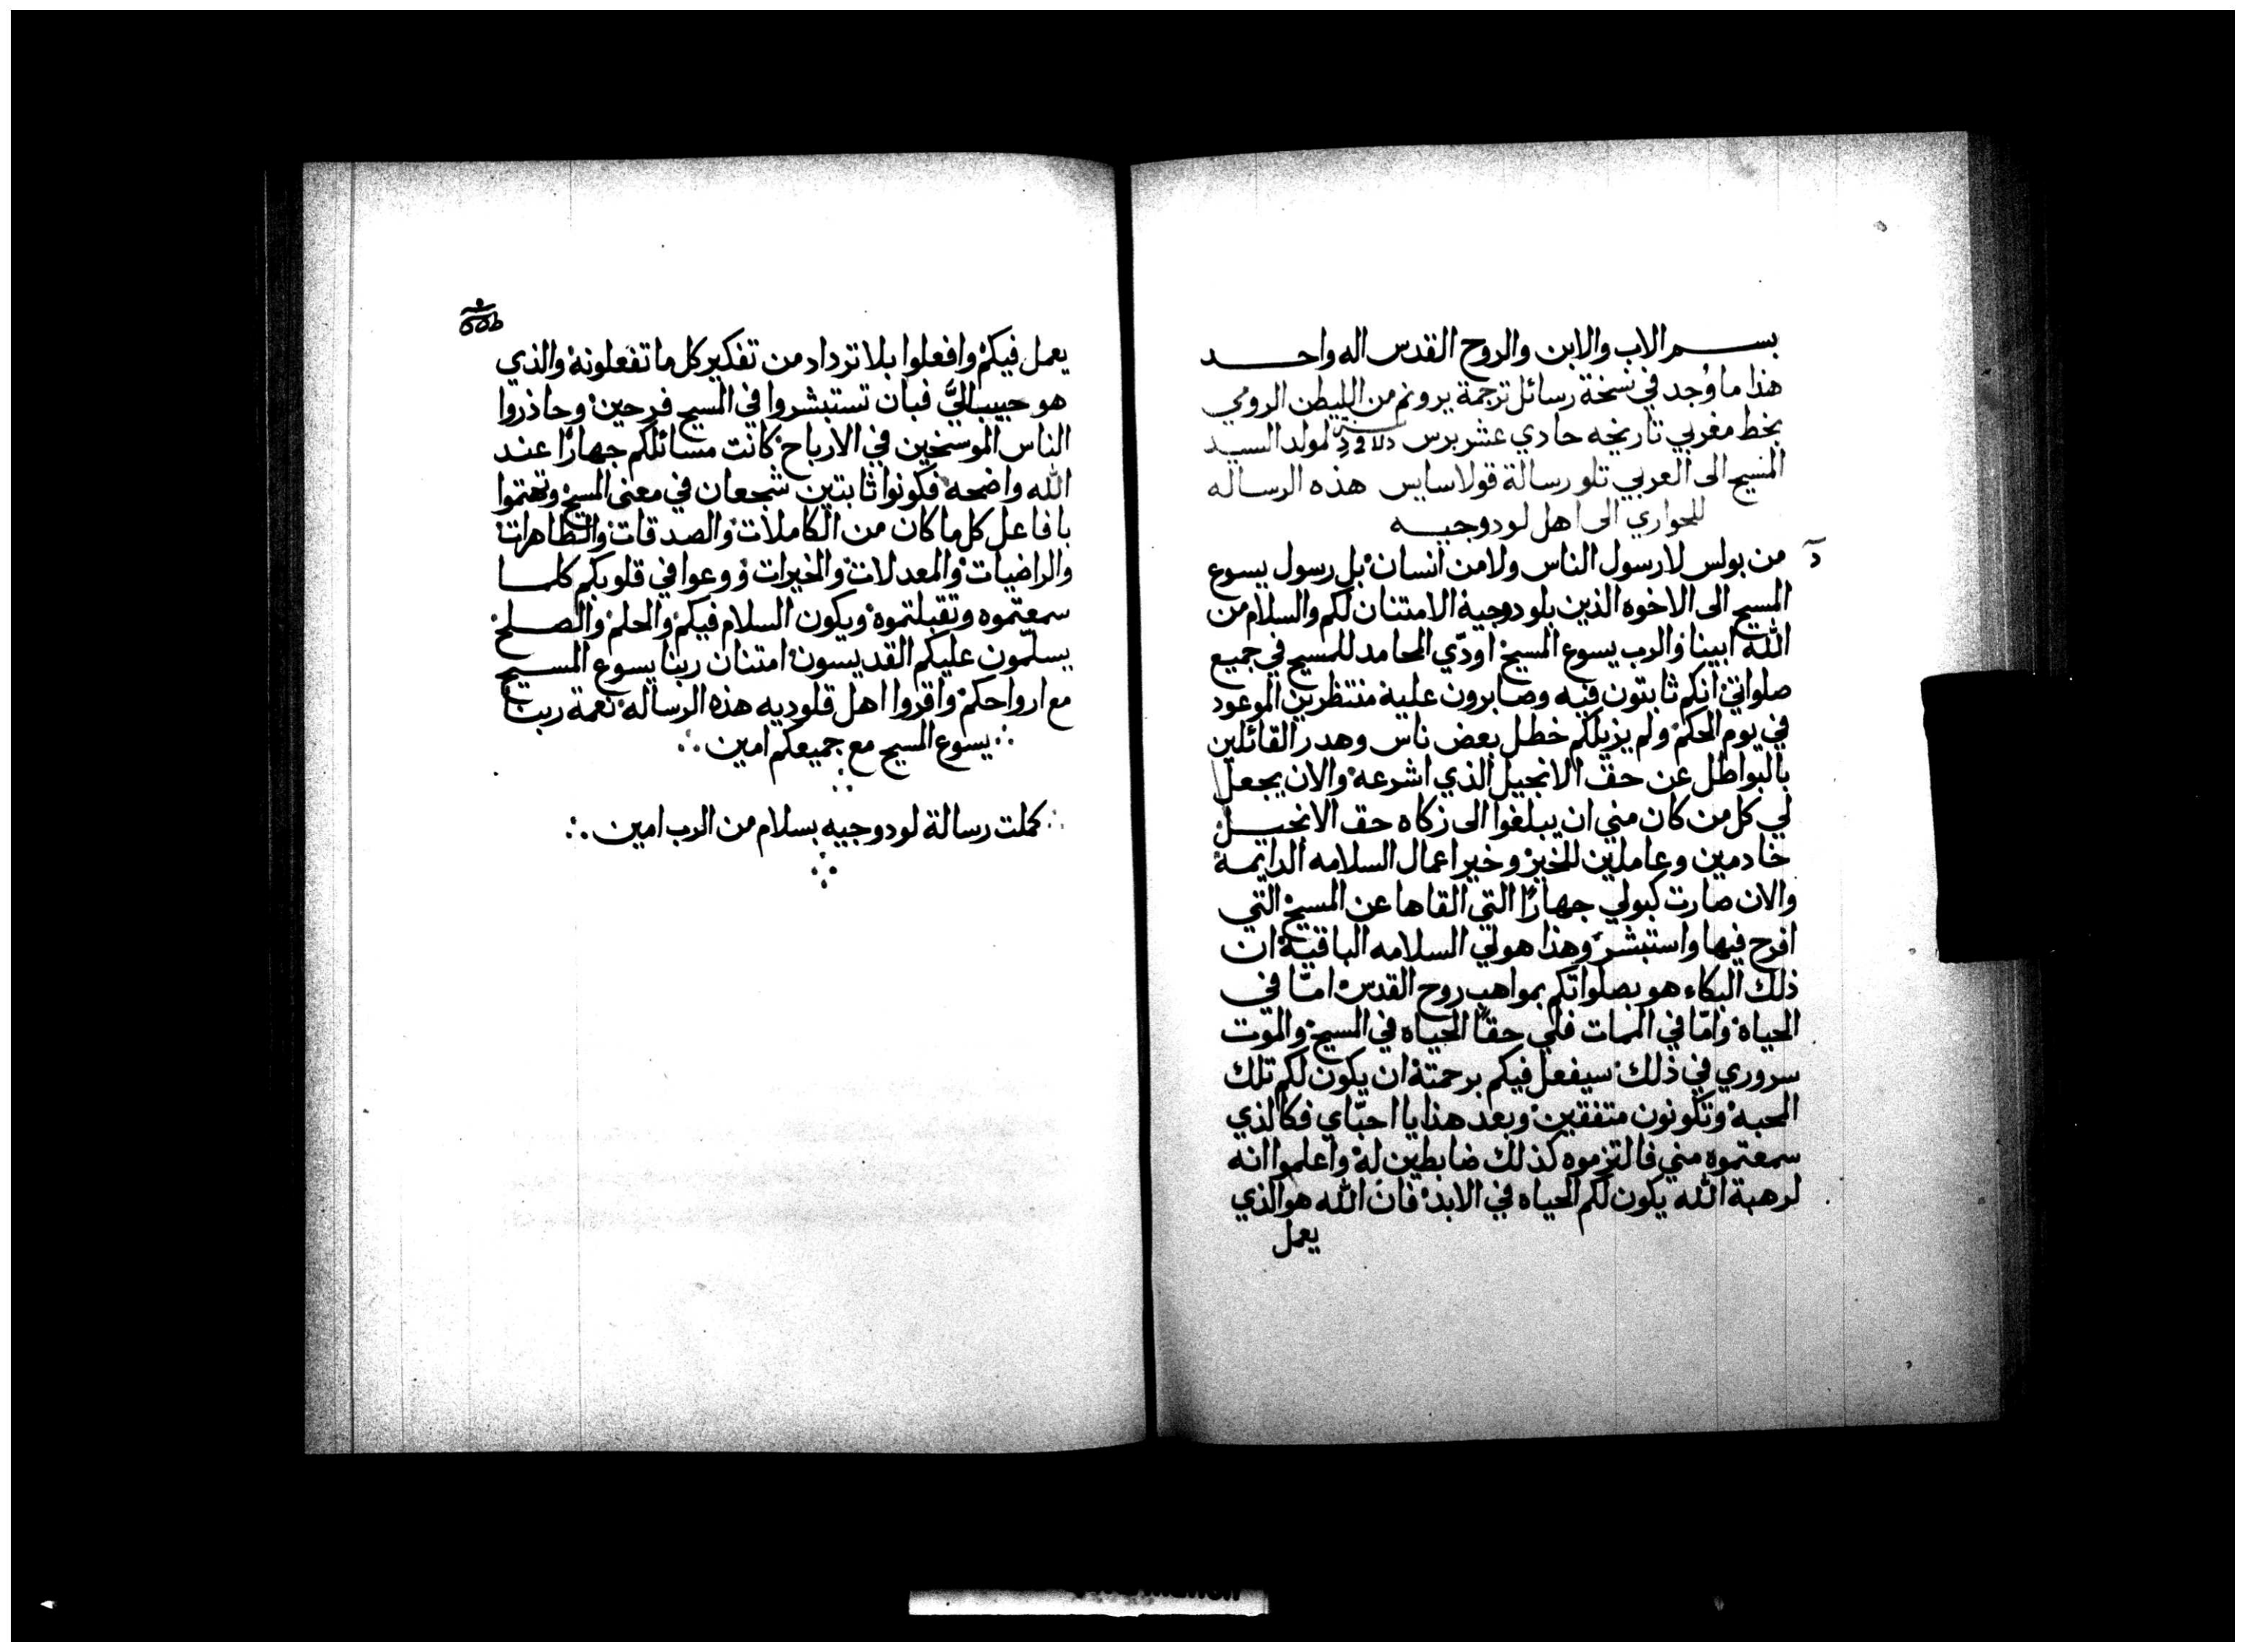 بسم الاب والابن والروح القدس اله واحد
هذا ما وُجد في نسخة رسائل ترجمة يرونم من الليطن الرومي
بخط مغربي تاريخه حادي عشر برس لمولد السيد
المسيح الى العربي تلو رسالة قولاسايس هذه الرساله
للحواري الى اهل لودوجيه
من بولس لا رسول الناس ولا من انسان بل رسول يسوع
المسيح الى الاخوه الذين بلودوجية الامتنان لكم والسلام من
الله ابينا والرب يسوع المسيح اودّي المحامد للمسيح في جميع
صلواتي انكم ثابتون فيه وصابرون عليه منتظرين الموعود
في يوم الحكم ولم يزيلكم خطل بعض ناس وهدر القائلين
بالبواطل عن حق الانجيل الذي اشرعه والان يجعل
لي كل من كان مني ان يبلغوا الى زكاه حق الانجيل
خادمين وعاملين للخير وخير اعمال السلامه الدايمة
والان صارت كبولي جهارًا التي القاها عن المسيح التي
افرح فيها واستبشر وهذا هو لي السلامه الباقية ان
ذلك البكاء هو بصلواتكم بمواهب روح القدس امّا في
الحياة وامّا في الممات فلي حقًا الحياه في المسيح والموت
سروري في ذلك سيفعل فيكم برحمتة ان يكون لكم تلك
المحبة وتكونون متفقين وبعد هذا يا احبّاي فكالذي
سمعتموه مني فالتزموه كذلك ضابطين له واعلموا انه
لرهبة الله يكون لكم الحياه في الابد فان الله هو الذي
يعمل
يعمل فيكم وافعلوا بلا ترداد من تفكير كل ما تفعلونه والذي
هو حبيب اليَّ فبان تستبشروا في المسيح فرحين وحاذروا
الناس الموسخين في الارباح كانت مسائلكم جهارًا عند
الله واضحه فكونوا ثابتين شجعان في معنى المسيح وتهتموا
بافاعل كل ما كان من الكاملات والصدقات والطاهرات
والراضيات والمعدلات والخيرات ووعوا في قلوبكم كلما
سمعتموه وتقبلتموه ويكون السلام فيكم والحلم والصلح
يسلمون عليكم القديسون امتنان ربنا يسوع المسيح
مع ارواحكم واقروا اهل قلوديه هذه الرساله نعمة ربنا
يسوع المسيح مع جميعكم امين
كملت رسالة لودوجيه بسلام من الرب امين